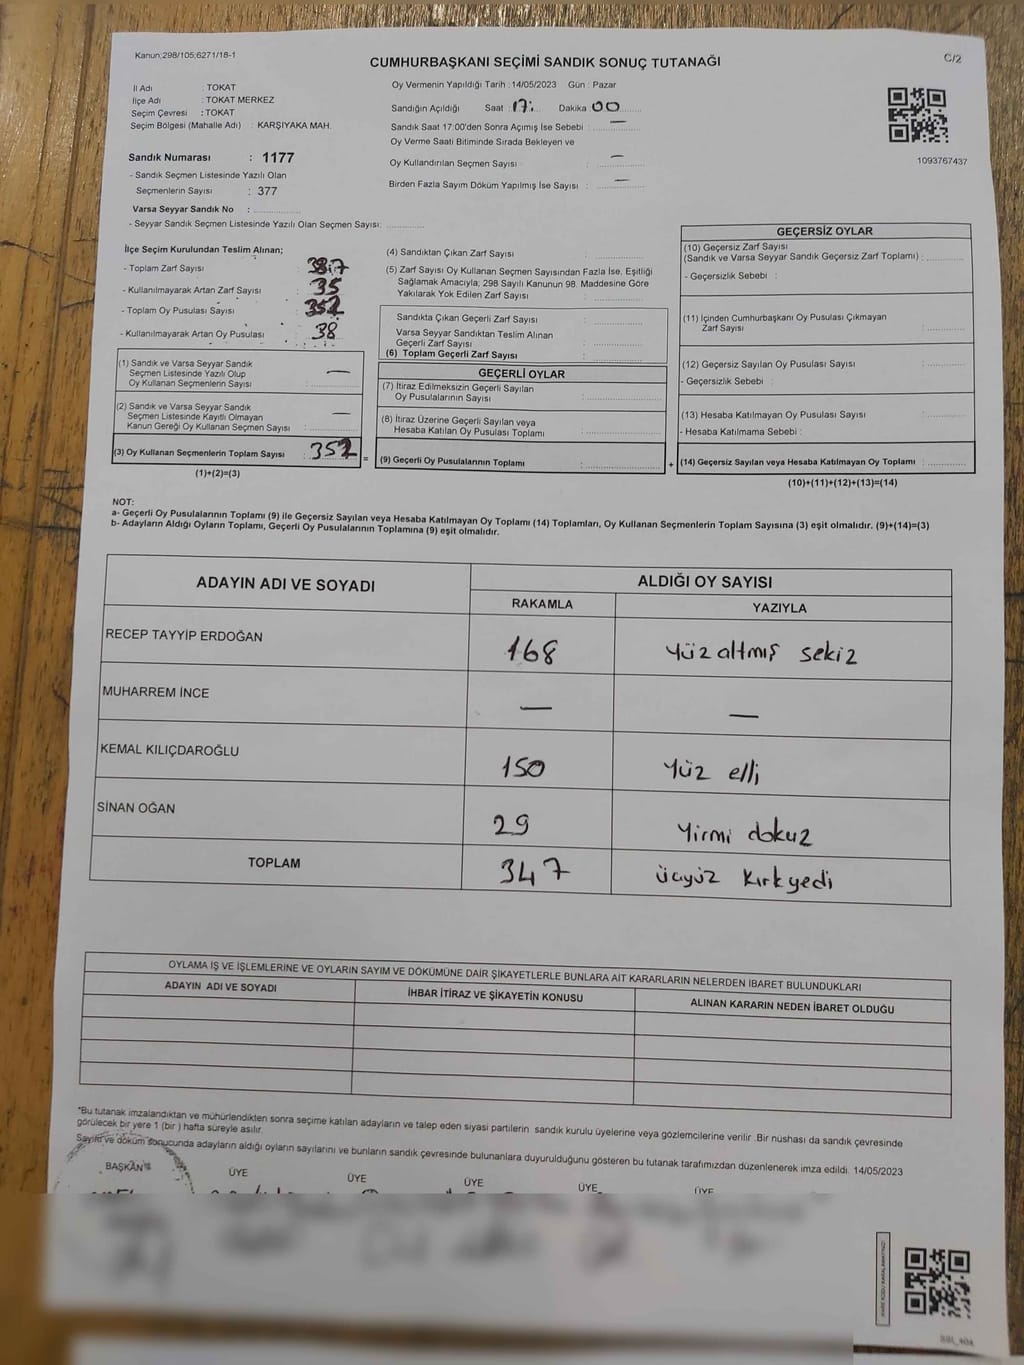 Kanun:298/105;6271/18-1
CUMHURBAŞKANI SEÇİMİ SANDIK SONUÇ TUTANAĞI
C/2
İl Adı : TOKAT
İlçe Adı : TOKAT MERKEZ
Seçim Çevresi : TOKAT
Seçim Bölgesi (Mahalle Adı) : KARŞIYAKA MAH.
Sandık Numarası : 1177
- Sandık Seçmen Listesinde Yazılı Olan
Seçmenlerin Sayısı : 377
Varsa Seyyar Sandık No :
- Seyyar Sandık Seçmen Listesinde Yazılı Olan Seçmen Sayısı:
Oy Vermenin Yapıldığı Tarih : 14/05/2023 Gün : Pazar
Sandığın Açıldığı Saat : 17: Dakika 00
Sandık Saat 17:00'den Sonra Açımış İse Sebebi : —
Oy Verme Saati Bitiminde Sırada Bekleyen ve
Oy Kullandırılan Seçmen Sayısı : —
Birden Fazla Sayım Döküm Yapılmış İse Sayısı : —
1093767437
İlçe Seçim Kurulundan Teslim Alınan;
- Toplam Zarf Sayısı :
- Kullanılmayarak Artan Zarf Sayısı : 35
- Toplam Oy Pusulası Sayısı :
- Kullanılmayarak Artan Oy Pusulası : 38
(1) Sandık ve Varsa Seyyar Sandık
Seçmen Listesinde Yazılı Olup
Oy Kullanan Seçmenlerin Sayısı : —
(2) Sandık ve Varsa Seyyar Sandık
Seçmen Listesinde Kayıtlı Olmayan
Kanun Gereği Oy Kullanan Seçmen Sayısı : —
(3) Oy Kullanan Seçmenlerin Toplam Sayısı : 352 =
(1)+(2)=(3)
(4) Sandıktan Çıkan Zarf Sayısı :
(5) Zarf Sayısı Oy Kullanan Seçmen Sayısından Fazla İse, Eşitliği
Sağlamak Amacıyla; 298 Sayılı Kanunun 98. Maddesine Göre
Yakılarak Yok Edilen Zarf Sayısı :
Sandıkta Çıkan Geçerli Zarf Sayısı :
Varsa Seyyar Sandıktan Teslim Alınan
Geçerli Zarf Sayısı :
(6) Toplam Geçerli Zarf Sayısı :
GEÇERLİ OYLAR
(7) İtiraz Edilmeksizin Geçerli Sayılan
Oy Pusulalarının Sayısı :
(8) İtiraz Üzerine Geçerli Sayılan veya
Hesaba Katılan Oy Pusulası Toplamı :
(9) Geçerli Oy Pusulalarının Toplamı : +
GEÇERSİZ OYLAR
(10) Geçersiz Zarf Sayısı
(Sandık ve Varsa Seyyar Sandık Geçersiz Zarf Toplamı) :
- Geçersizlik Sebebi :
(11) İçinden Cumhurbaşkanı Oy Pusulası Çıkmayan
Zarf Sayısı :
(12) Geçersiz Sayılan Oy Pusulası Sayısı :
- Geçersizlik Sebebi :
(13) Hesaba Katılmayan Oy Pusulası Sayısı :
- Hesaba Katılmama Sebebi :
(14) Geçersiz Sayılan veya Hesaba Katılmayan Oy Toplamı :
(10)+(11)+(12)+(13)=(14)
NOT:
a- Geçerli Oy Pusulalarının Toplamı (9) ile Geçersiz Sayılan veya Hesaba Katılmayan Oy Toplamı (14) Toplamları, Oy Kullanan Seçmenlerin Toplam Sayısına (3) eşit olmalıdır. (9)+(14)=(3)
b- Adayların Aldığı Oyların Toplamı, Geçerli Oy Pusulalarının Toplamına (9) eşit olmalıdır.
ADAYIN ADI VE SOYADI
ALDIĞI OY SAYISI
RAKAMLA YAZIYLA
RECEP TAYYİP ERDOĞAN 168 Yüz altmış sekiz
MUHARREM İNCE — —
KEMAL KILIÇDAROĞLU 150 Yüz elli
SİNAN OĞAN 29 Yirmi dokuz
TOPLAM 347 üçyüz kırkyedi
OYLAMA İŞ VE İŞLEMLERİNE VE OYLARIN SAYIM VE DÖKÜMÜNE DAİR ŞİKAYETLERLE BUNLARA AİT KARARLARIN NELERDEN İBARET BULUNDUKLARI
ADAYIN ADI VE SOYADI İHBAR İTİRAZ VE ŞİKAYETİN KONUSU ALINAN KARARIN NEDEN İBARET OLDUĞU
*Bu tutanak imzalandıktan ve mühürlendikten sonra seçime katılan adayların ve talep eden siyasi partilerin sandık kurulu üyelerine veya gözlemcilerine verilir .Bir nüshası da sandık çevresinde
görülecek bir yere 1 (bir ) hafta süreyle asılır.
Sayım ve döküm sonucunda adayların aldığı oyların sayılarını ve bunların sandık çevresinde bulunanlara duyurulduğunu gösteren bu tutanak tarafımızdan düzenlenerek imza edildi. 14/05/2023
BAŞKAN ÜYE ÜYE ÜYE ÜYE ÜYE